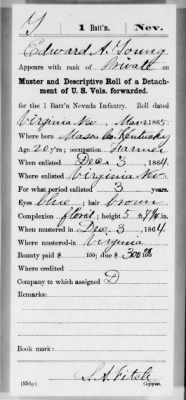 Y | 1 Batt'n. | Nev.
Edward A. Young
Appears with rank of Private on
Muster and Descriptive Roll of a Detach-
ment of U. S. Vols. forwarded.
for the 1 Batt'n Nevada Infantry. Roll dated
Virginia Nev Mar 2, 1865.
Where born Mason Co. Kentucky
Age 20 y'rs; occupation Farmer
When enlisted Dec 3, 1864
Where enlisted Virginia Nev
For what period enlisted 3 years.
Eyes blue; hair brown
Complexion floral; height 5 ft. in.
When mustered in Dec 3, 1864
Where mustered in Virginia
Bounty paid $ 100; due $ 300 100
Where credited
Company to which assigned D
Remarks:
Book mark:
S. A. Fitch
Copyist.